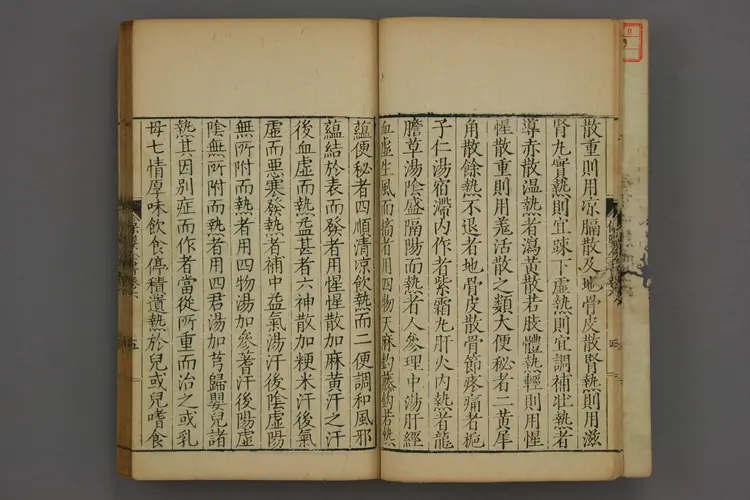 散重則用凉膈散及地骨皮散腎熱則用滋
腎丸實熱則宜踈下虛熱則宜調補壮熱者
導赤散温熱者瀉黄散若肢體熱輕則用惺
惺散重則用羗活散之類大便秘者二黄犀
角散餘熱不退者地骨皮散骨節疼痛者梔
子仁湯宿滯内作者紫霜丸肝火内熱者龍
膽草湯陰盛隔陽而熱者人參理中湯肝經
血虛生風而搐者用四物天麻鈎藤鈎若熱
蘊便秘者四順清凉飲熱而二便調和風邪
蘊結於表而發者用惺惺散加麻黄汗之汗
後血虛而熱益甚者六神散加粳米汗後氣
虛而惡寒發熱者補中益氣湯汗後陰虛陽
無所附而熱者用四物湯加參蓍汗後陽虛
陰無所附而熱者用四君湯加芎歸嬰兒諸
熱其因别症而作者當從所重而治之或乳
母七情厚味飲食停積遺熱於兒或兒嗜食